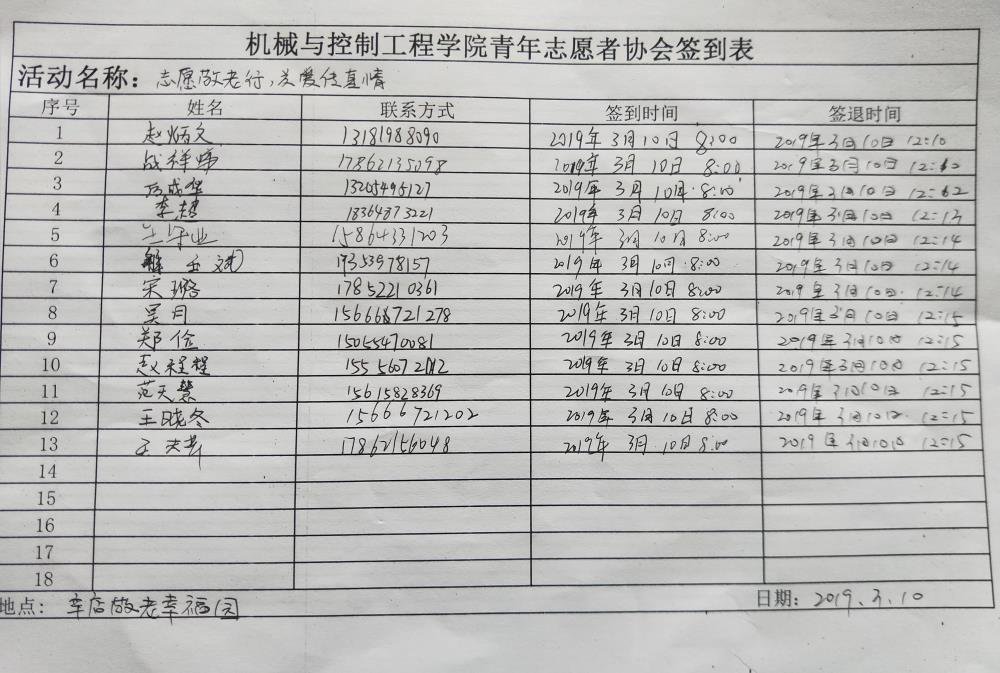 机械与控制工程学院青年志愿者协会签到表
活动名称：志愿敬老行，关爱传真情
序号 姓名 联系方式 签到时间 签退时间
1 赵炳文 13181988090 2019年3月10日 8:00 2019年3月10日 12:10
2 战祥 17862135098 2019年3月10日 8:00 2019年3月10日
3 13205495127 2019年3月10日 8:00 2019年3月10日
4 李超 18364873221 2019年3月10日 8:00 2019年3月10日 12:13
5 15864331203 2019年3月10日 8:00 2019年3月10日 12:14
6 解玉斌 2019年3月10日 8:00 2019年3月10日 12:14
7 宋璐 17852210361 2019年3月10日 8:00 2019年3月10日 12:14
8 吴月 2019年3月10日 8:00 2019年3月10日 12:15
9 郑俭 15055470081 2019年3月10日 8:00 2019年3月10日 12:15
10 赵程程 2019年3月10日 8:00 2019年3月10日 12:15
11 范天慧 15615828369 2019年3月10日 8:00 2019年3月10日 12:15
12 王晓冬 15666721202 2019年3月10日 8:00 2019年3月10日 12:15
13 王 17862156048 2019年3月10日 8:00 2019年3月10日 12:15
14
15
16
17
18
地点：辛店敬老幸福园 日期：2019.3.10